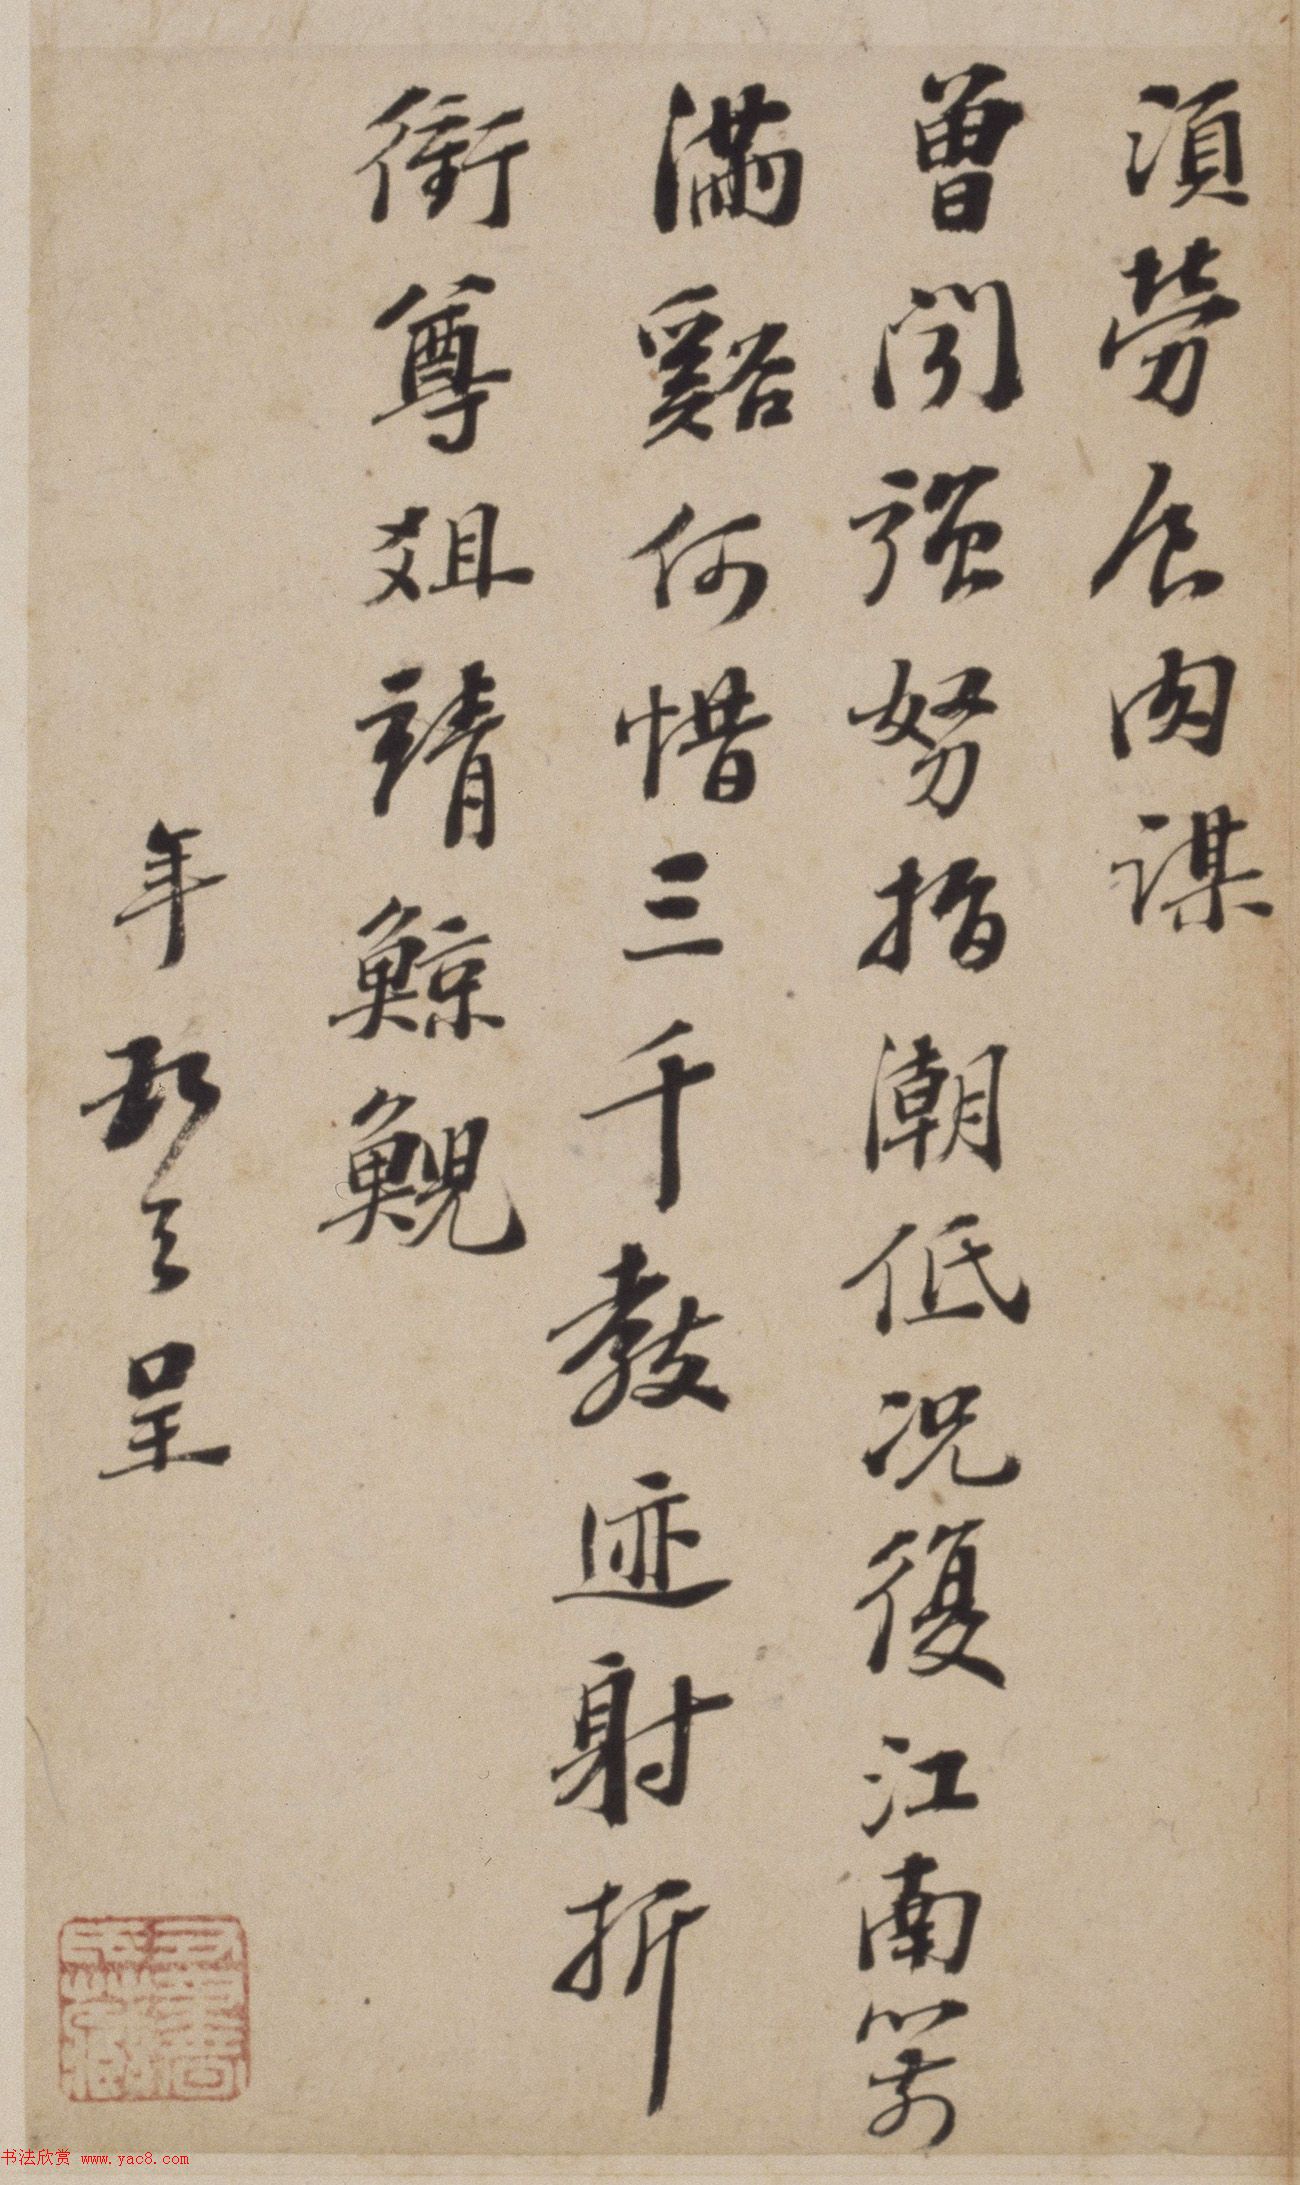 須勞食肉謀
曾聞強弩指潮低況復江南箭
滿谿何惜三千教迹射折
衝尊俎靖鯨鯢
年 呈
书法欣赏 www.yac8.com